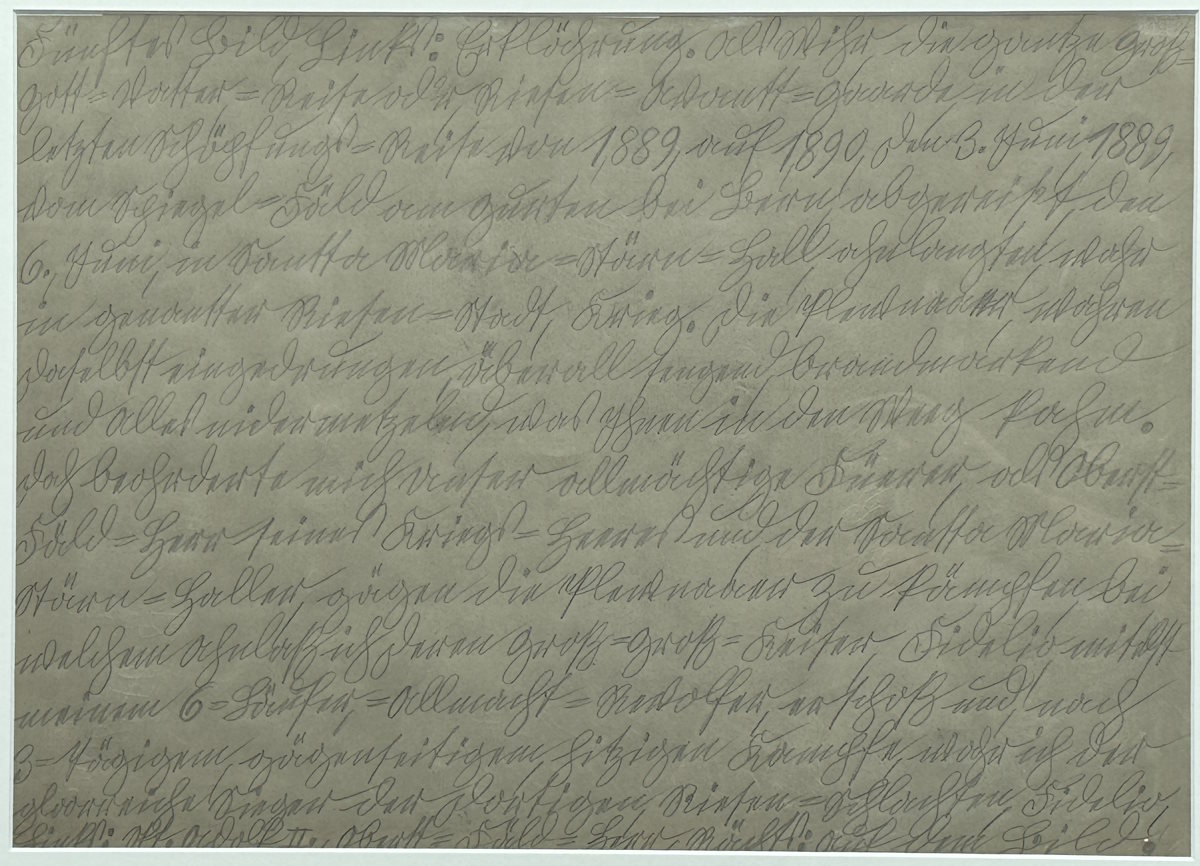 Fünftes Bild, Links: Erklöhrung. Als Wihr die gantze Groß=
Gott=Vatter=Reise odr, Riesen=Avantt=Gaarde, in der
letzten Schöpfungs=Reise von 1889, auf 1890, den 3. Juni 1889,
vom Spiegel=Fäld am Gurten bei Bern abgereis't, den
6., Juni, in Santta Maria=Stärn=Hall ahnlangten, wahr
in genantter Riesen=Stadt, Krieg. Die Plewnaaer, wahren
daselbst eingedrungen, überall sengend, brandmarkend
und Alles nidermetzelnd, was Ihnen in den Weeg kahm.
Dah beohrderte mich Unser allmächtige Füerer, als Oberst=
Fäld=Herr seines Kriegs=Heeres und der Santta Maria=
Stärn=Haller, gägen die Plewnaaer zu kämpfen bei
welchem Ahnlaß ich deren Groß=Groß=Keiser, Fidelio mitelst
meinem 6=Läufer,=Allmacht=Rewolfer, erschoß und, nach
3=Tägigem, gägenseitigem, hitzigen Kampfe, wahr ich der
gloorreiche Sieger der dortigen Riesen=Schlachten, Fidelio,
Links: Skt. Adolf II. Oberst=Fäld=Herr, Rächts: auf dem Bild.